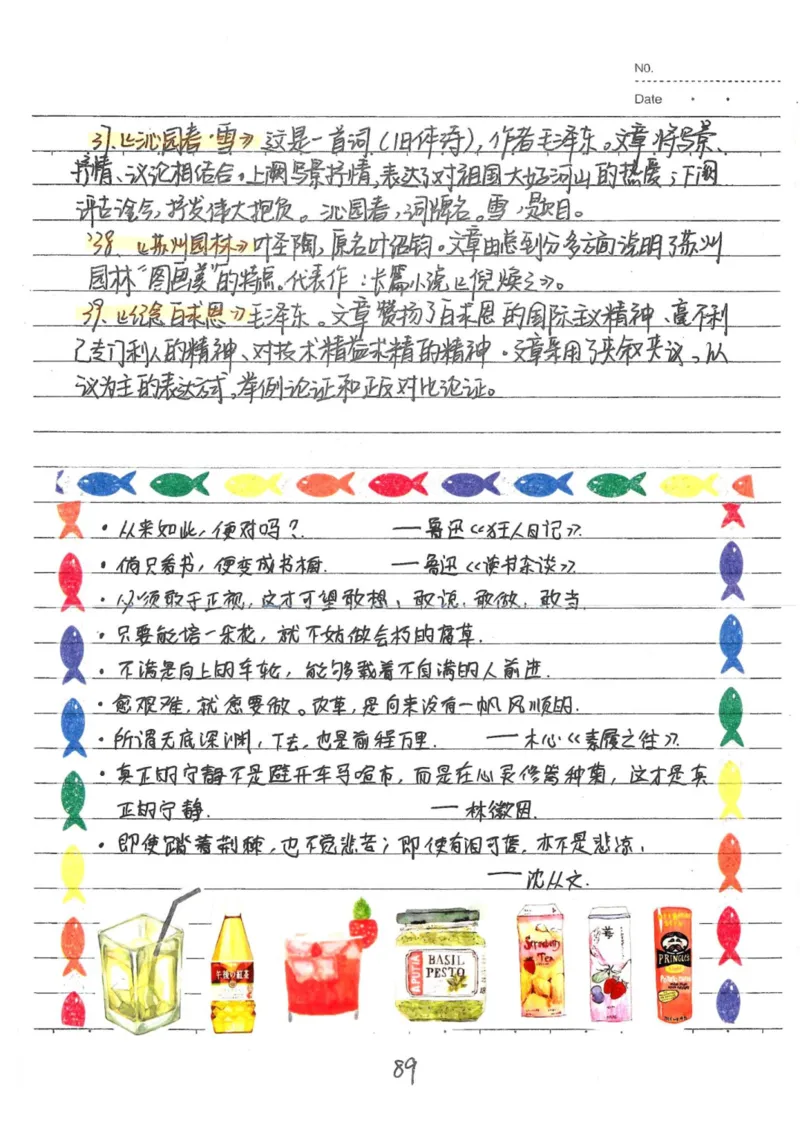 NO.
Date
37.《沁园春·雪》这是一首词(旧体诗),作者毛泽东。文章将写景、
抒情、议论相结合。上阕写景抒情,表达了对祖国大好河山的热爱;下阕
评古论今,抒发伟大抱负。沁园春,词牌名。雪,是题目。
38.《苏州园林》叶圣陶,原名叶绍钧。文章由总到分多方面说明了苏州
园林“图画美”的特点。代表作:长篇小说《倪焕之》。
39.《纪念白求恩》毛泽东。文章赞扬了白求恩的国际主义精神、毫不利
己专门利人的精神、对技术精益求精的精神。文章采用了夹叙夹议,以
议为主的表达方式,举例论证和正反对比论证。
·从来如此,便对吗? ——鲁迅《狂人日记》.
·倘只看书,便变成书橱. ——鲁迅《读书杂谈》
·必须敢于正视,这才可望敢想,敢说,敢做,敢当.
·只要能培一朵花,就不妨做会朽的腐草.
·不满是向上的车轮,能够载着不自满的人前进.
·愈艰难,就愈要做。改革,是向来没有一帆风顺的.
·所谓无底深渊,下去,也是前程万里. ——木心《素履之往》.
·真正的宁静不是避开车马喧市,而是在心灵修篱种菊,这才是真
正的宁静. ——林徽因.
·即使踏着荆棘,也不觉悲苦;即使有泪可落,亦不是悲凉,
——沈从文.
午後の紅茶
APUTIA
BASIL
PESTO
Strawberry
Tea
莓
PRINGLES
89